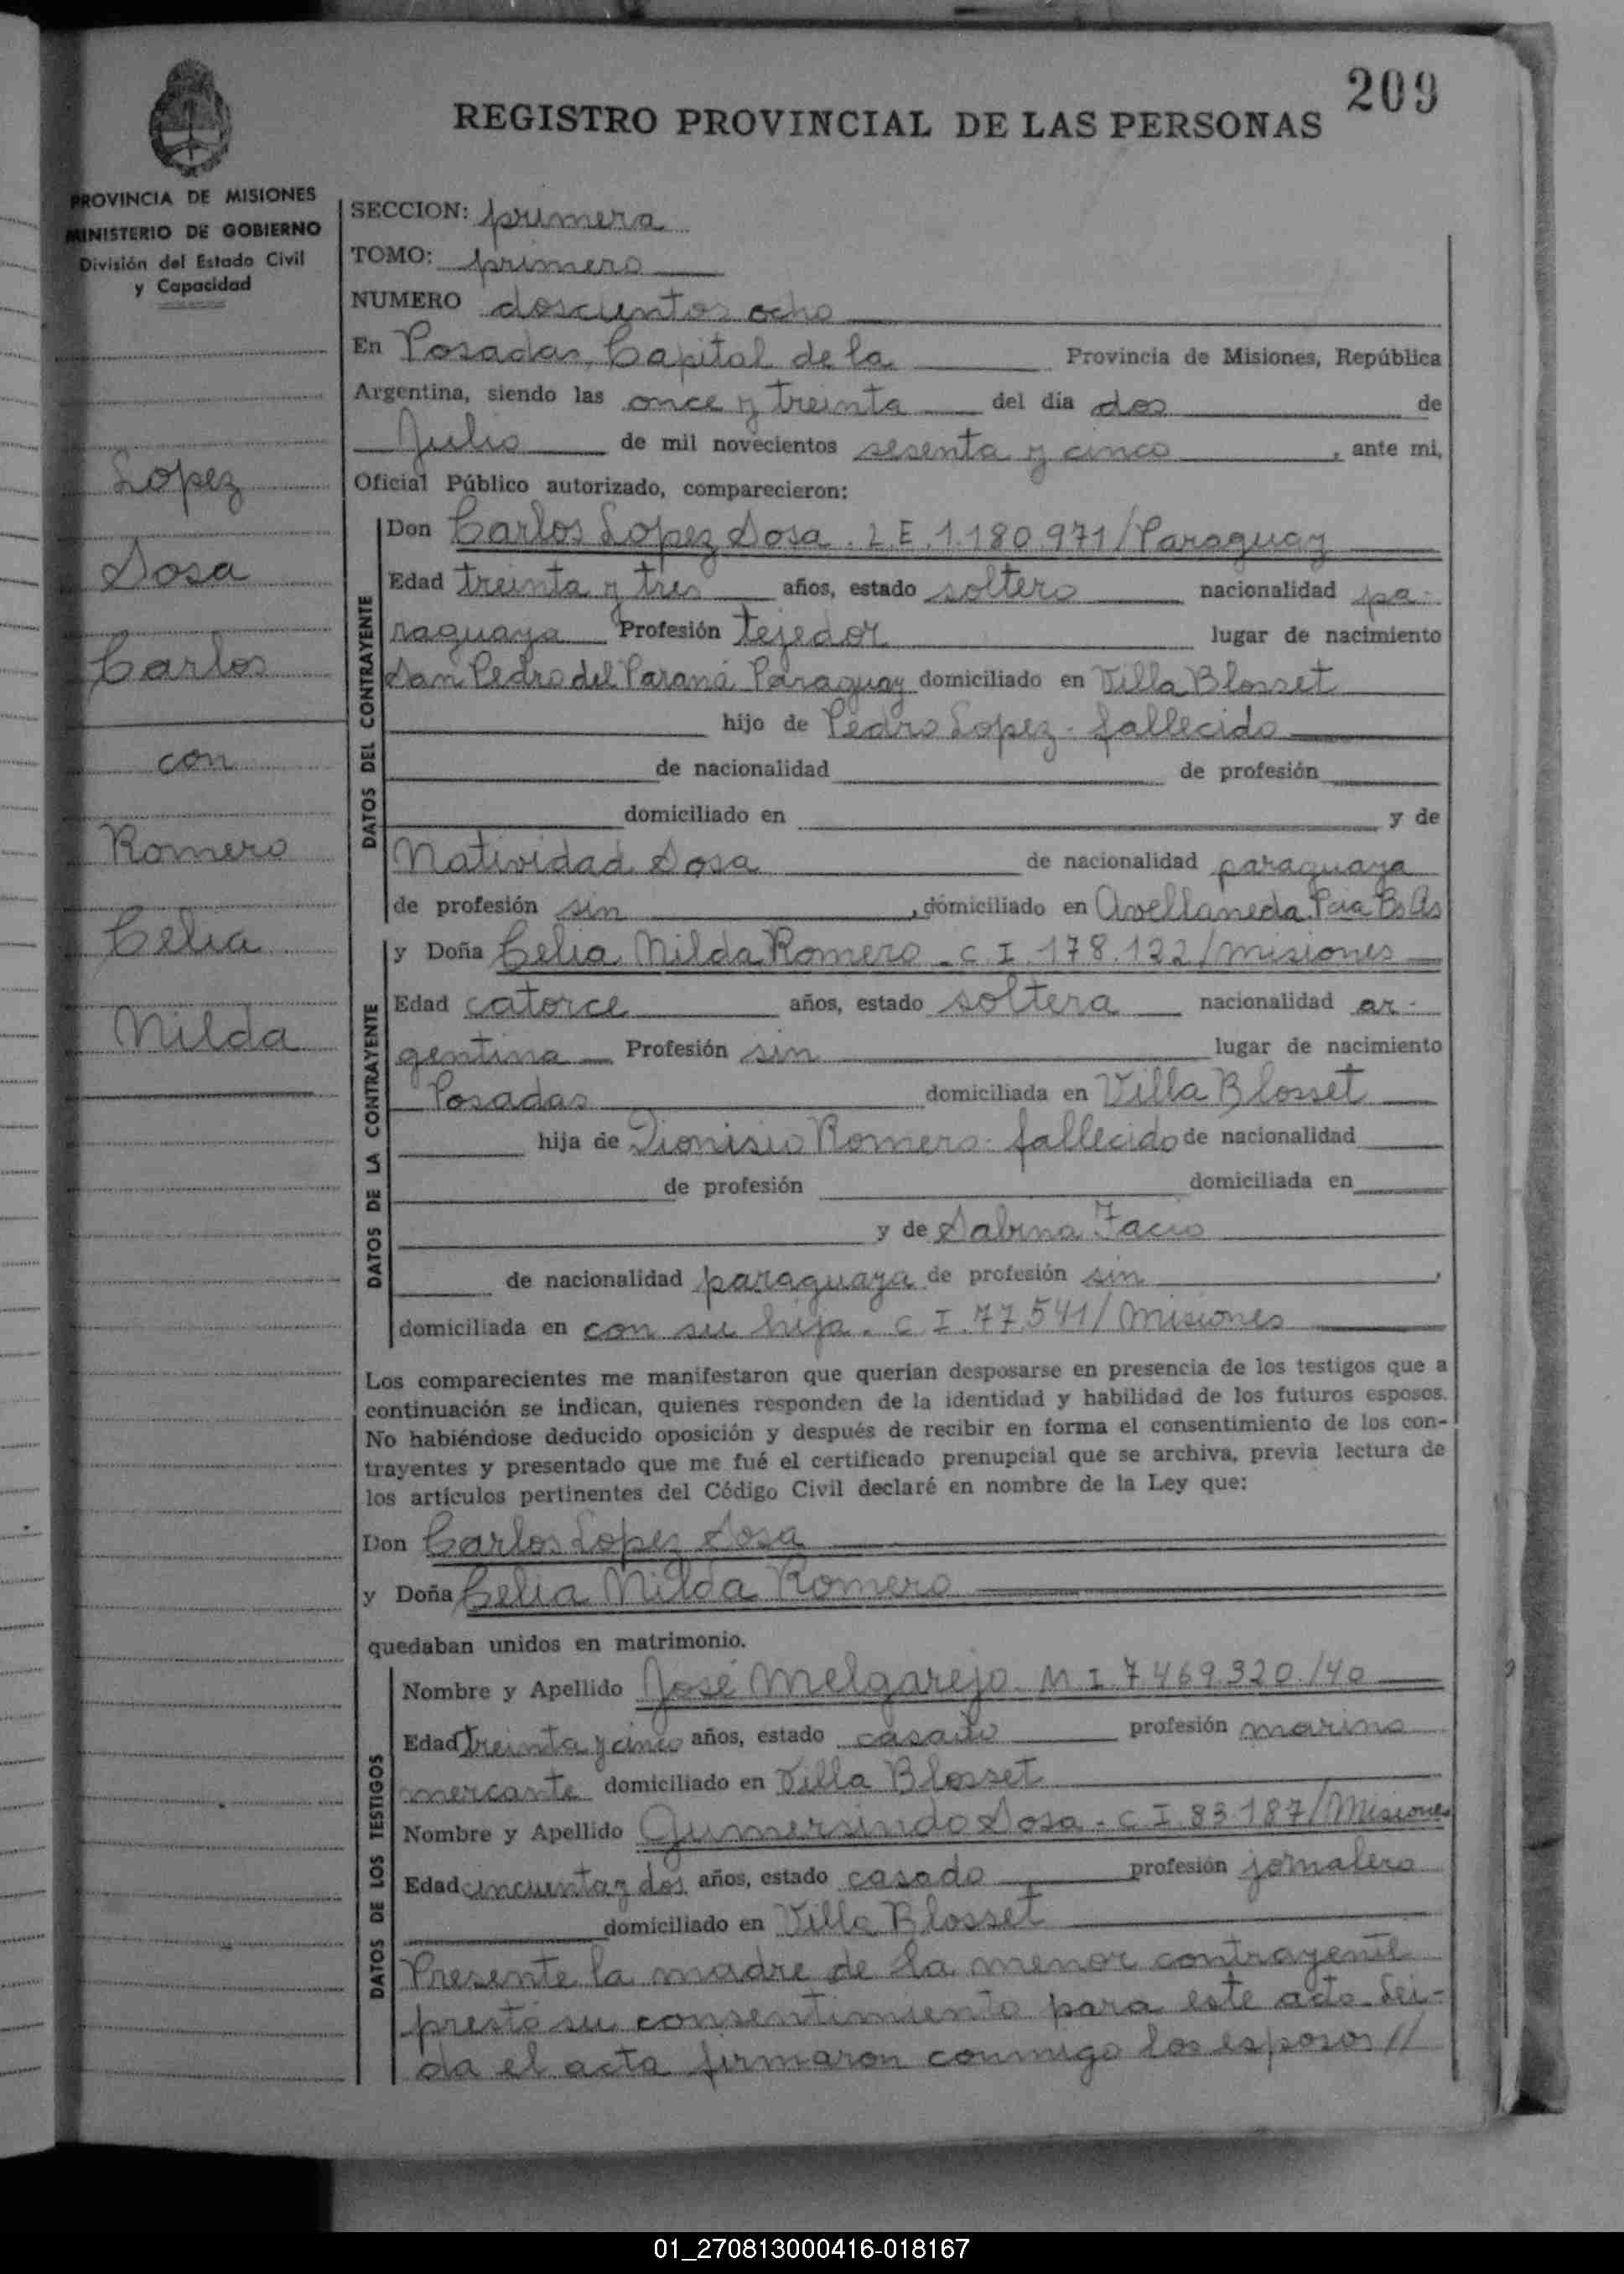 209
REGISTRO PROVINCIAL DE LAS PERSONAS
PROVINCIA DE MISIONES
MINISTERIO DE GOBIERNO
División del Estado Civil
y Capacidad
Lopez
Sosa
Carlos
con
Romero
Celia
Nilda
SECCION: primera
TOMO: primero
NUMERO doscientos ocho
En Posadas, Capital de la Provincia de Misiones, República
Argentina, siendo las once y treinta del día dos de
Julio de mil novecientos sesenta y cinco, ante mi,
Oficial Público autorizado, comparecieron:
DATOS DEL CONTRAYENTE
Don Carlos Lopez Sosa. L.E. 1.180.971/Paraguay
Edad treinta y tres años, estado soltero nacionalidad pa-
raguaya Profesión tejedor lugar de nacimiento
San Pedro del Paraná Paraguay domiciliado en Villa Blosset
hijo de Pedro Lopez - fallecido
de nacionalidad de profesión
domiciliado en y de
Natividad Sosa de nacionalidad paraguaya
de profesión sin, domiciliado en Avellaneda Pcia Bs As
DATOS DE LA CONTRAYENTE
y Doña Celia Nilda Romero - C I. 178.122/misiones
Edad catorce años, estado soltera nacionalidad ar-
gentina Profesión sin lugar de nacimiento
Posadas domiciliada en Villa Blosset
hija de Dionisio Romero - fallecido de nacionalidad
de profesión domiciliada en
y de Sabina Facio
de nacionalidad paraguaya de profesión sin,
domiciliada en con su hija. C I. 77.541/Misiones
Los comparecientes me manifestaron que querían desposarse en presencia de los testigos que a
continuación se indican, quienes responden de la identidad y habilidad de los futuros esposos.
No habiéndose deducido oposición y después de recibir en forma el consentimiento de los con-
trayentes y presentado que me fué el certificado prenupcial que se archiva, previa lectura de
los artículos pertinentes del Código Civil declaré en nombre de la Ley que:
Don Carlos Lopez Sosa
y Doña Celia Nilda Romero
quedaban unidos en matrimonio.
DATOS DE LOS TESTIGOS
Nombre y Apellido José Melgarejo. M. I. 7.469.320./40
Edad treinta y cinco años, estado casado profesión marino
mercante domiciliado en Villa Blosset
Nombre y Apellido Gumersindo Sosa - C I. 83.187/Misiones
Edad cincuenta y dos años, estado casado profesión jornalero
domiciliado en Villa Blosset
Presente la madre de la menor contrayente
prestó su consentimiento para este acto. Lei-
da el acta firmaron conmigo los esposos //
01_270813000416-018167